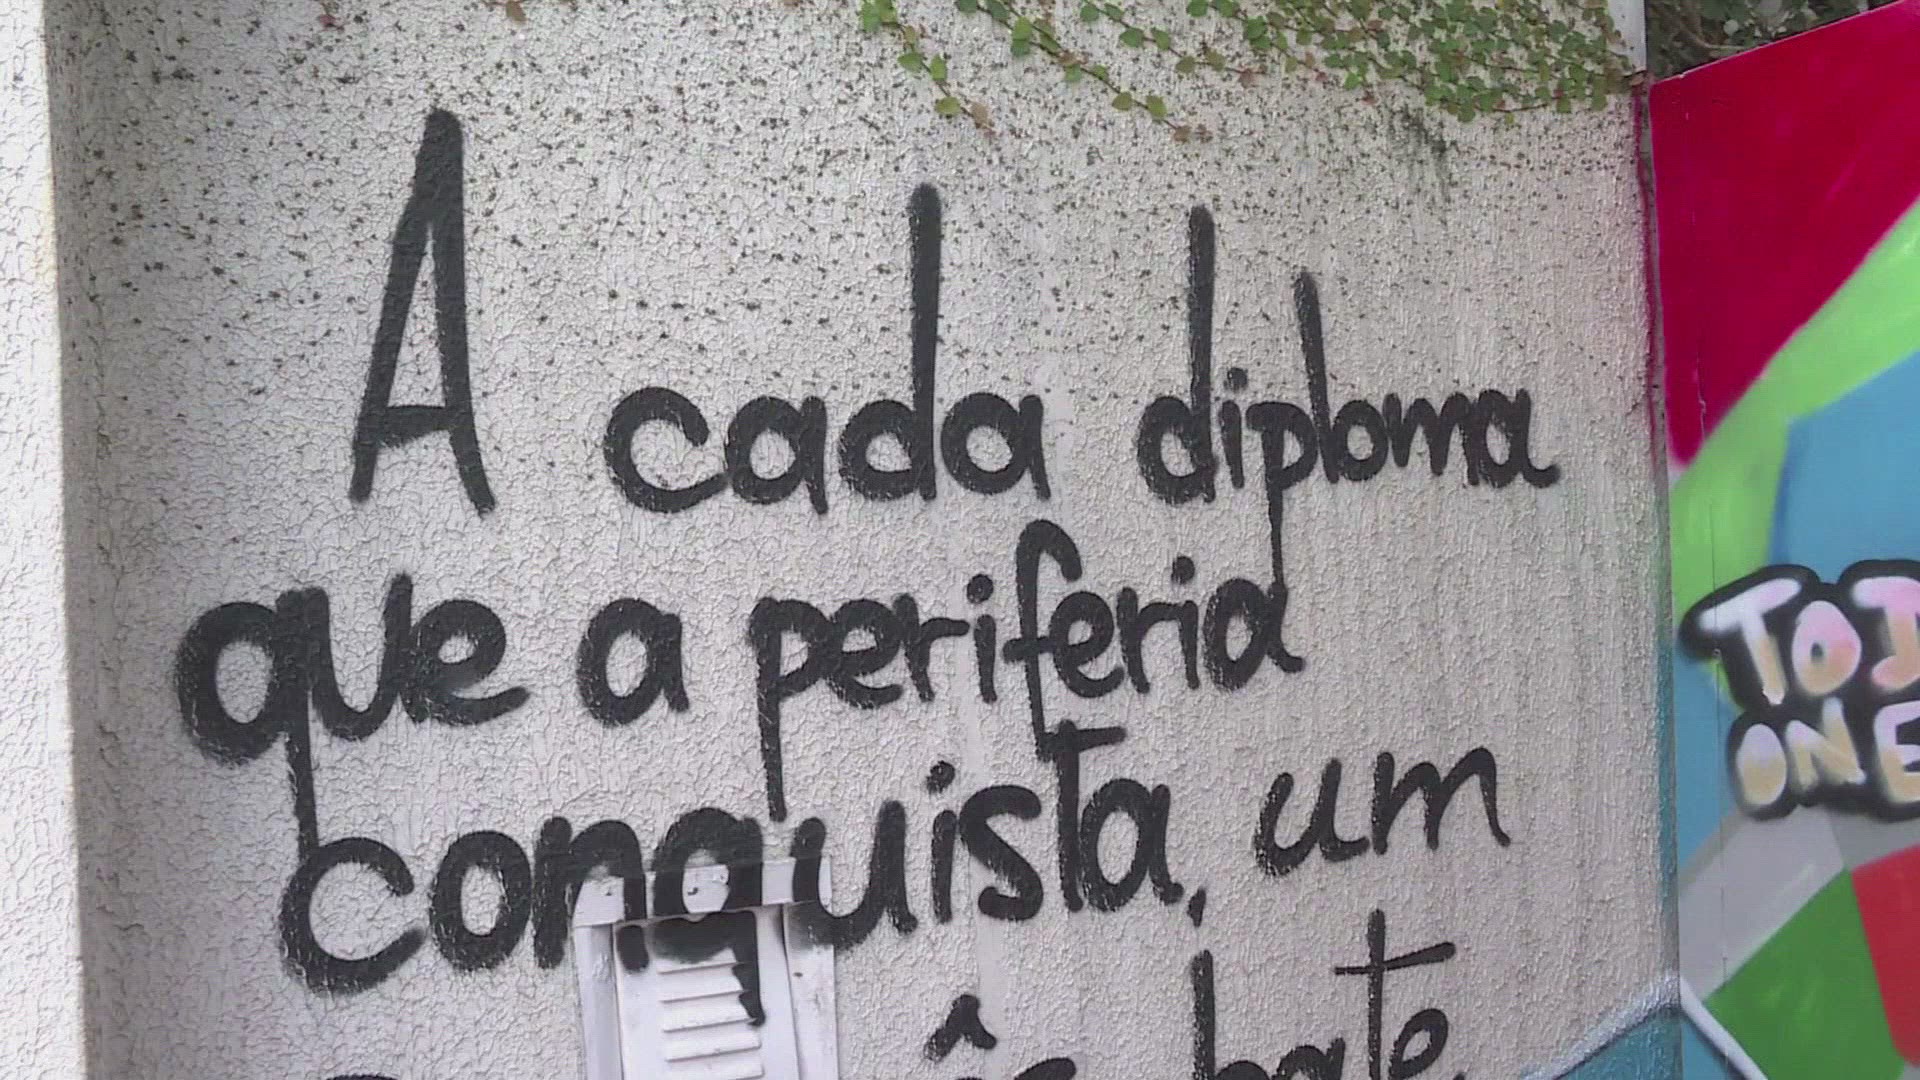 A cada diploma
que a periferia
conquista, um
bate
TOJ
ONE